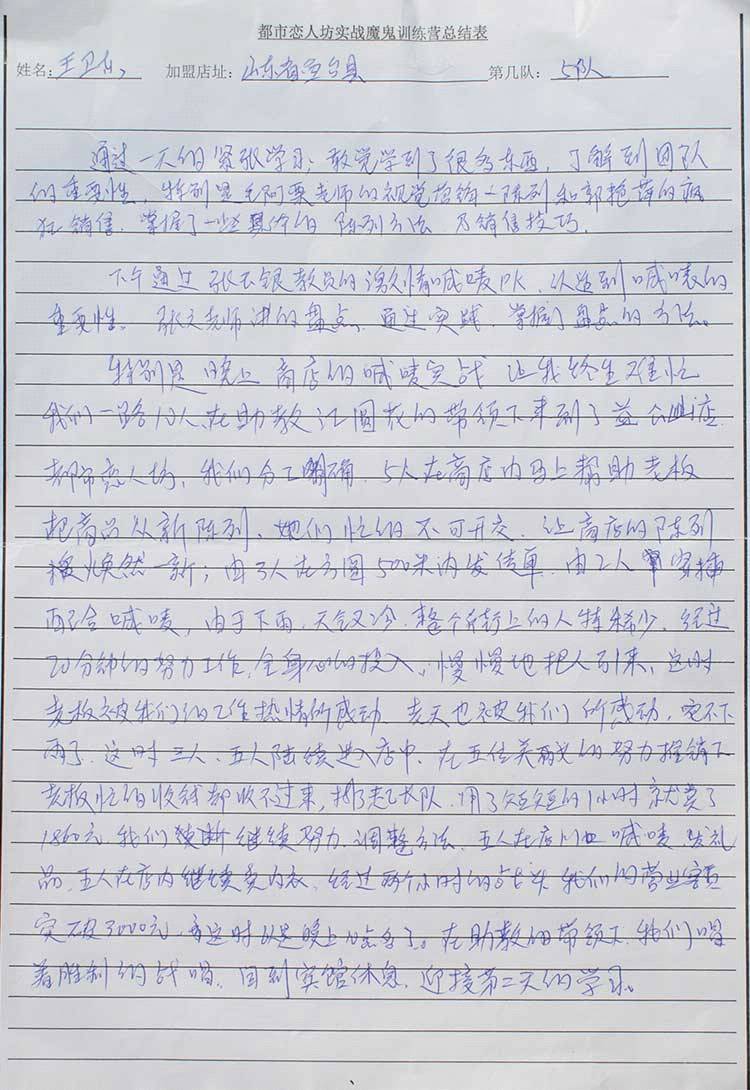 都市恋人坊实战魔鬼训练营总结表
姓名：王卫 加盟店址：山东省 县 第几队：5队
通过一天的紧张学习，敢觉学到了很多东西，了解到团队
的重要性，特别是 老师的视觉营销—陈列和郭艳萍的疯
狂销售，掌握了一些具体的陈列方法 及销售技巧。
下午通过张玉银教员的激情喊唛PK，认识到喊唛的
重要性。张文老师讲的盘点，通过实践，掌握了盘点的方法。
特别是晚上商店的喊唛实战 让我终生难忘
我们一路10人，在助教江圆花的带领下来到了益 店
都市恋人坊，我们分工明确，5人在商店内马上帮助老板
把商品从新陈列，她们忙的不可开交，让商店的陈列
焕然一新；由3人在方圆500米内发传单，由2人 穿插
配合喊唛，由于下雨，天气又冷，整个街上的人特稀少，经过
20分钟的努力工作，全身心的投入，慢慢地把人引来，这时
老板被我们的工作热情所感动，老天也被我们所感动，突不下
雨了，这时三人、五人陆续进入店中，在五位美女的努力推销下
老板忙的收钱都收不过来，排起了长队，用了短短的1小时就卖了
1860元，我们 继续努力，调整方法，五人在店门口喊唛，发礼
品，五人在店内继续卖内衣，经过两个小时的战斗，我们的营业额
突破3000元，这时以是晚上10点多了。在助教的带领下，我们唱
着胜利的战唱，回到宾馆休息，迎接第二天的学习。